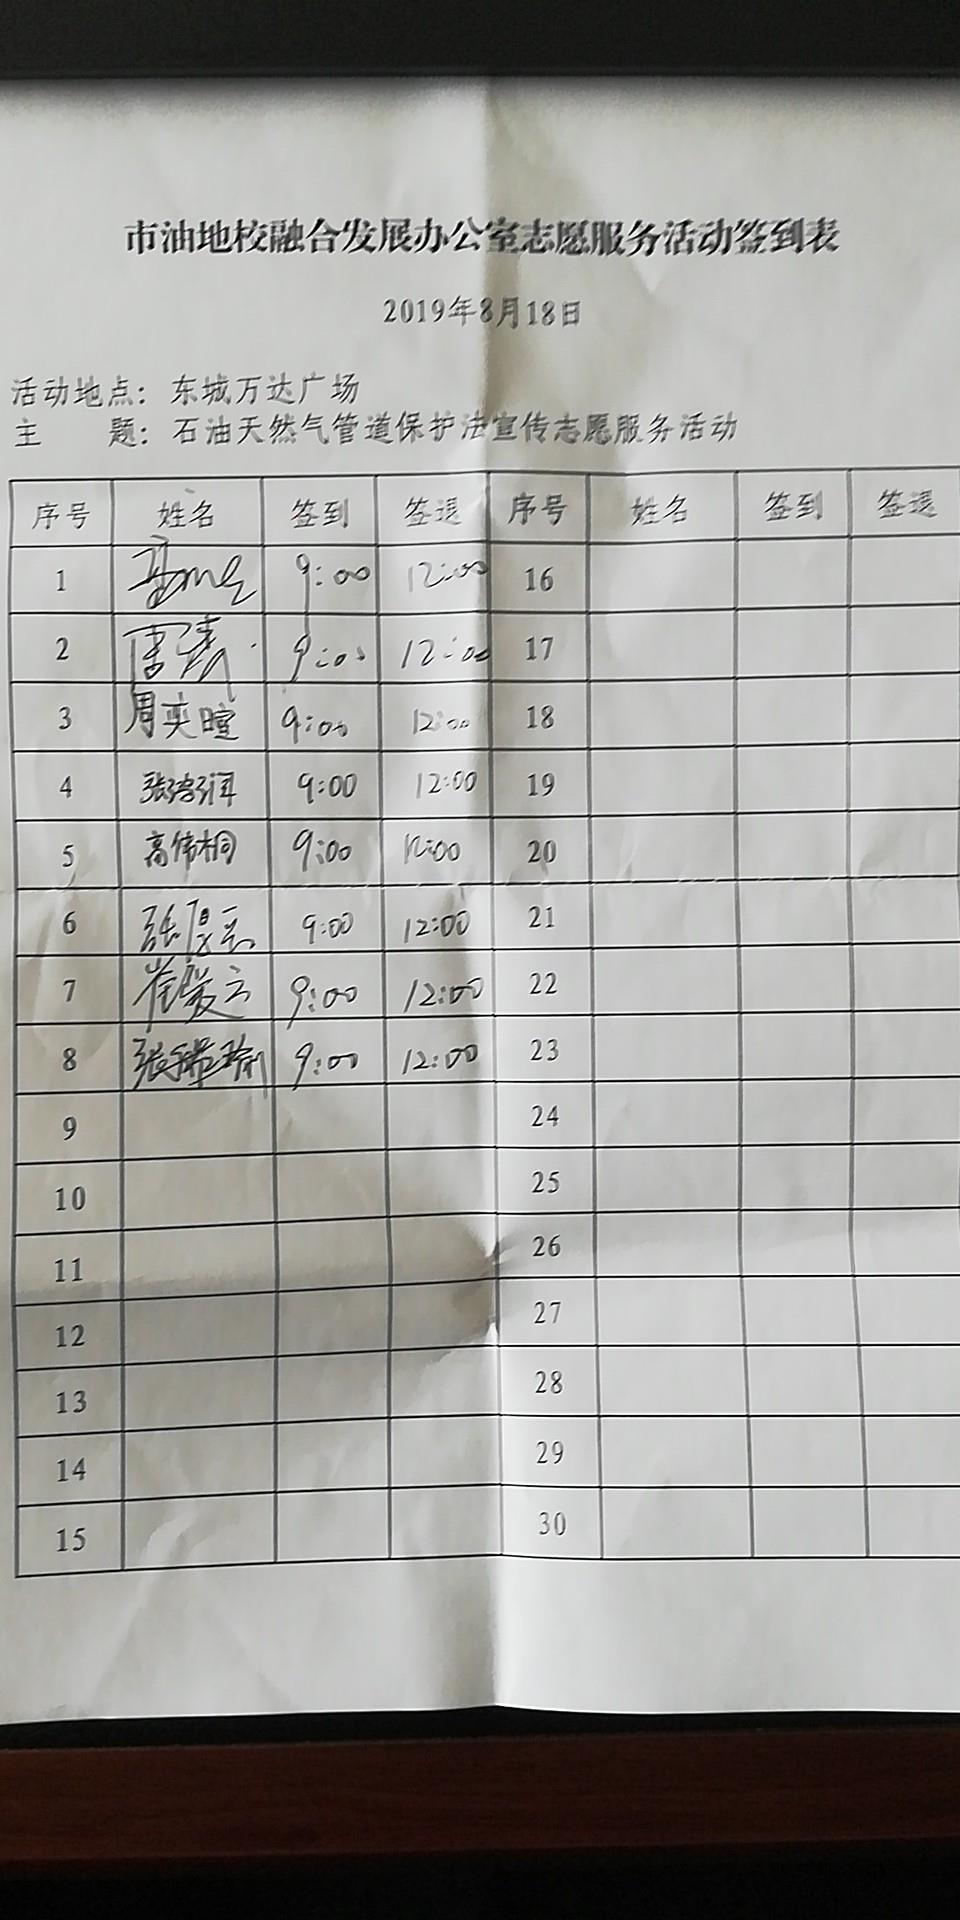 市油地校融合发展办公室志愿服务活动签到表
2019年8月18日
活动地点：东城万达广场
主 题：石油天然气管道保护法宣传志愿服务活动
序号 姓名 签到 签退 序号 姓名 签到 签退
1 9:00 12:00 16
2 9:00 12:00 17
3 周奕暄 9:00 12:00 18
4 9:00 12:00 19
5 高伟桐 9:00 12:00 20
6 9:00 12:00 21
7 崔爱云 9:00 12:00 22
8 9:00 12:00 23
9 24
10 25
11 26
12 27
13 28
14 29
15 30